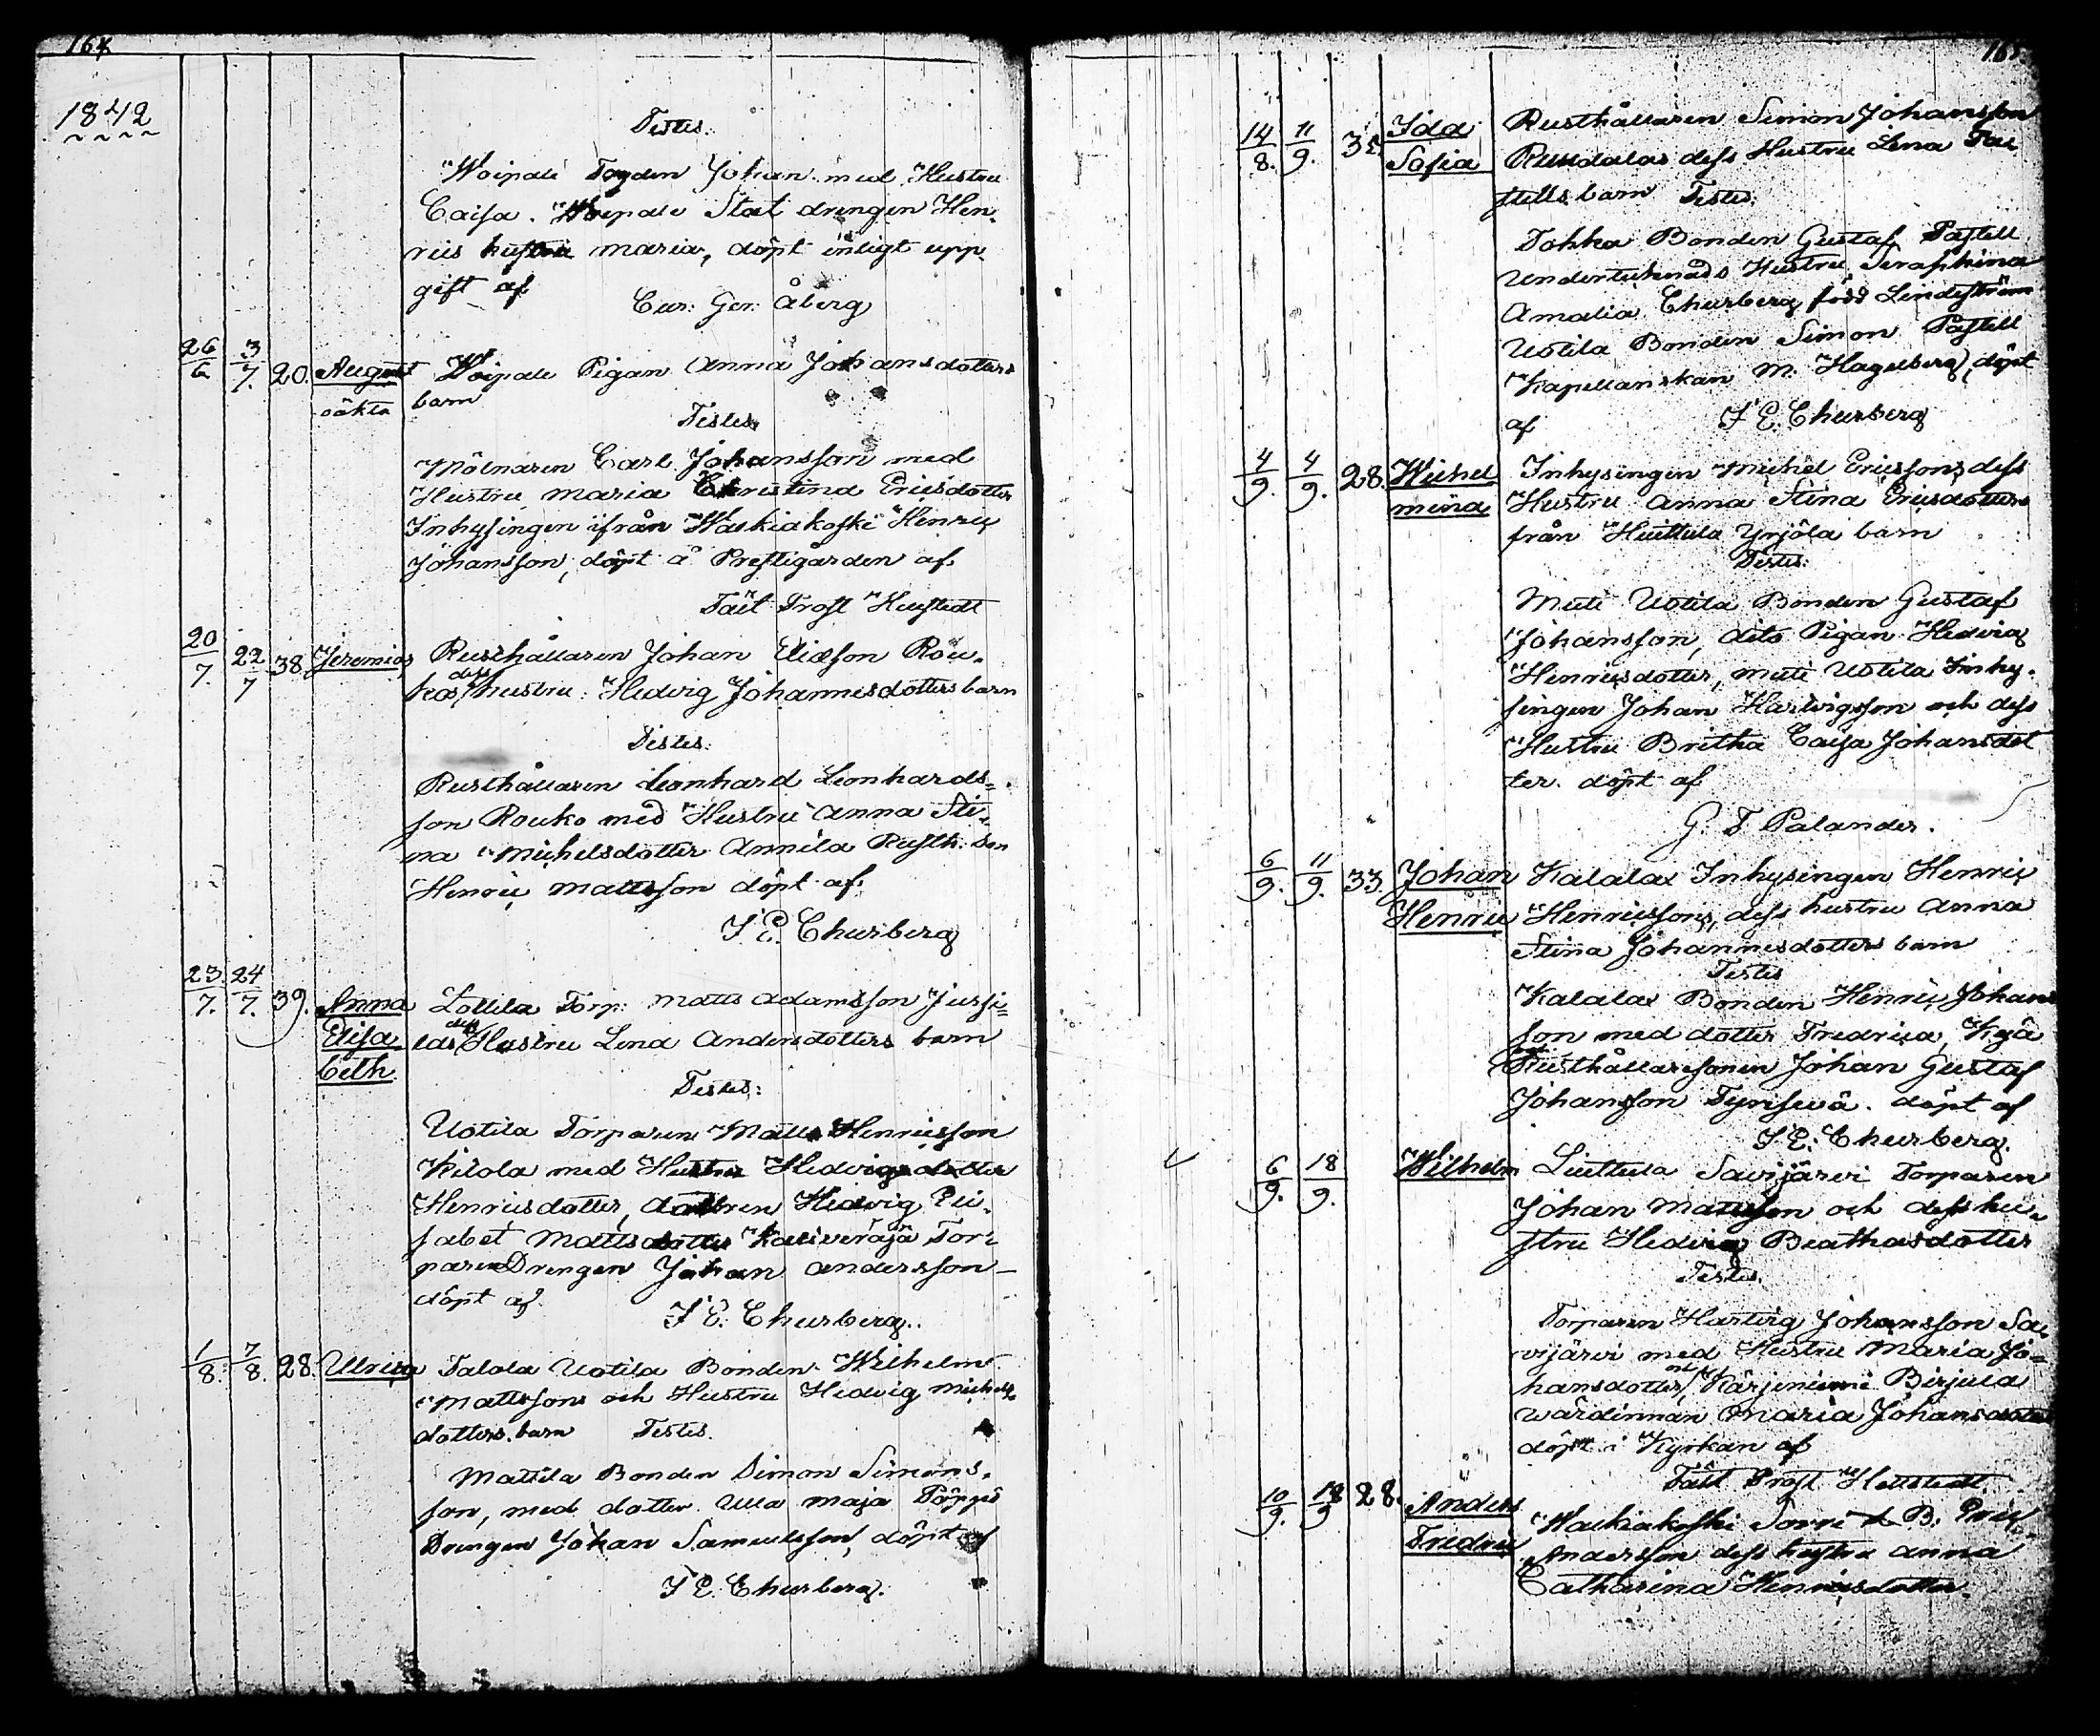 164
1842
Testes.
Woipala Torparen Johan med Hustru
Caisa. Woipala Stat drengen Hen-
rics hustru Maria, döpt enligt upp-
gift af
Cur: Ger: Åberg
26/6 3/7. 20. August Woipala Pigan Anna Johansdotters
oäkta barn
Testes
Mölnaren Carl Johansson med
Hustru Maria Christina Ericsdotter
Inhysingen ifrån Walkiakoski Henric
Johansson, döpt å Prestgården af
Fält Prost Hellstedt
20/7. 22/7 38 Jeremias Rusthållaren Johan Eliæson Rou-
kos dess hustru Hedvig Johannesdotters barn
Testes:
Rusthållaren Leonhard Leonhards-
son Rouko med Hustru Anna Sti-
na Michelsdotter Annila Rusth. son
Henric Mattsson döpt af
F. E. Churberg
23/7. 24/7. 39. Anna Lottila Torp: Matts Adamsson Jussi-
Elisa las dess Hustru Lena Andersdotters barn
beth.
Testes:
Uotila Torparen Matts Henricsson
Kilola med Hustru Hedvig dotter
Henricsdotter, dottren Hedvig Eli-
sabet Mattsdotter Kariveräjä Tor-
paren Drengen Johan Andersson
döpt af
F. E. Churberg.
1/8. 7/8. 28. Ulrica Talola Uotila Bonden Wilhelm
Mattssons och Hustru Hedvig Michels-
dotters barn Testes.
Mattila Bonden Simon Simons-
son, med dotter Ulla Maja
Drengen Johan Samuelsson, döpt af
F. E. Churberg.
165.
14/8. 11/9. 35. Ida Rusthållaren Simon Johansson
Sofia Rundalas dess Hustru Lena Pa-
stells barn Testes.
Tohka Bonden Gustaf Pastell
Undertecknads Hustru Seraphina
Amalia Churberg född Lindeström
Uotila Bonden Simon Pastell
Kapellanskan M. Hagelberg, döpt
af F. E. Churberg
4/9. 4/9. 28. Wilhel Inhysingen Michel Ericssons dess
mina Hustru Anna Stina Ericsdotters
från Huittula Yrjölä barn
Testes:
Muti Uotila Bonden Gustaf
Johansson, dito Pigan Hedvig
Henricsdotter, Muti Uotila Inhy-
singen Johan Hartvigsson och dess
Hustru Britha Caisa Johansdot
ter. döpt af
G. F Palander.
6/9. 11/9. 33. Johan Kalalax Inhysingen Henric
Henric Henricssons, dess hustru Anna
Stina Johannesdotters barn
Testes
Kalalax Bonden Henric Johans
son med dotter Fredrica,
Rusthållaresonen Johan Gustaf
Johansson Tyrisevä. döpt af
F. E. Churberg.
6/9. 18/9. Wilhelm Liuttula Savijärvi Torparen
Johan Mattsson och dess hu-
stru Hedvig Beathasdotter
Testes.
Torparen Hartvig Johansson Sa-
vijärvi med Hustru Maria Jo-
hansdotter, Kärjenniemi Birjula
wärdinnan Maria Johansdotter
döpt i Kyrkan af
Fält Prost Hellstedt
10/9. 18/9 28. Anders Walkiakoski Sorri B. Eric
Fredric Andersson dess hustru Anna
Catharina Henricsdotter.